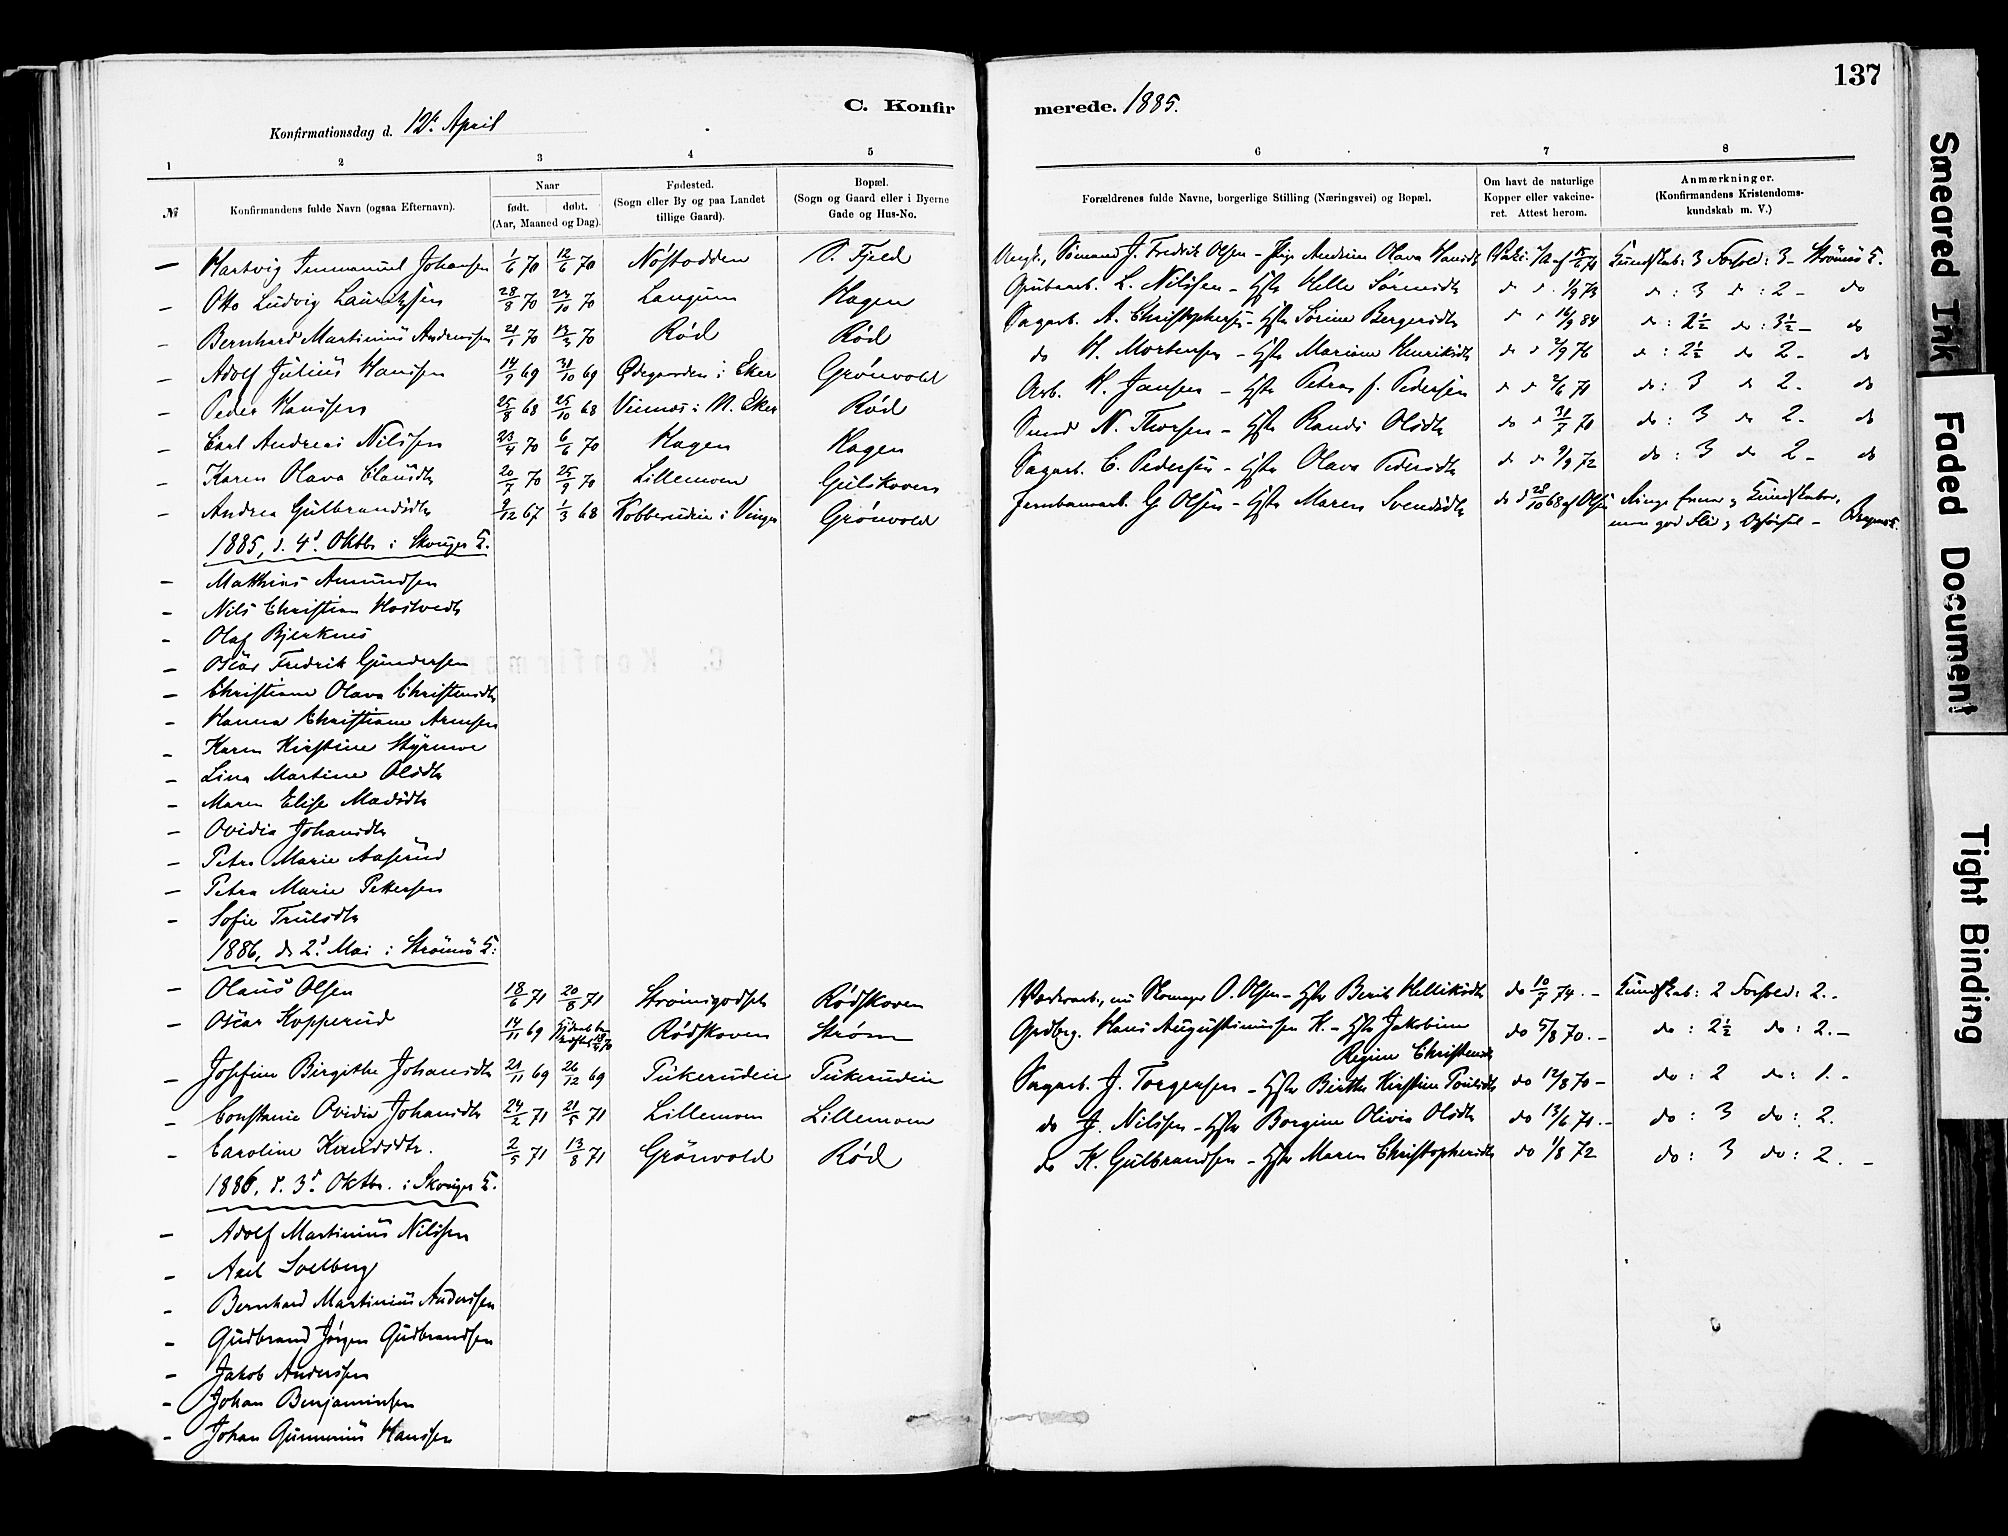 137
C. Konfir merede. 1885.
Konfirmationsdag d. 12te April
1 2 3 4 5 6 7 8
№
Konfirmandens fulde Navn (ogsaa Efternavn).
Naar
født. døbt.
(Aar, Maaned og Dag).
Fødested.
(Sogn eller By og paa Landet
tillige Gaard).
Bopæl.
(Sogn og Gaard eller i Byerne
Gade og Hus-No.
Forældrenes fulde Navne, borgerlige Stilling (Næringsvei) og Bopæl.
Om havt de naturlige
Kopper eller vakcine-
ret. Attest herom.
Anmærkninger.
(Konfirmandens Kristendoms-
kundskab m. V.)
— Hartvig Immanuel Johansen 1/6 70 12/6 70 Nøstodden S. Fjeld Sømand J. Fredrik Olsen – Pige Andrine Olava Hansdt Kundskab: 3 Forhold: 3 – Strømsø K.
— Otto Ludvig Lauritzsen 28/8 70 23/10 70 Langum Hagen Grubearb. L. Nilssen – Hstr Helle Sørensdtr do do 1/9 73 do: 3 do: 2 – do
— Bernhard Martinius Anderssen 21/1 70 13/3 70 Rød Rød Sagarb. A. Christophersen – Hstr Sørine Bergersdtr do do 16/9 84 do: 2½ do: 3½ – do
— Adolf Julius Hanssen 14/9 69 31/10 69 Ødegaarden i Eker Grønvold do H. Mortensen – Hstr Mariane Henriksdtr do do 2/9 76 do: 2½ do 2 – do
— Peder Hanssen 25/8 68 25/10 68 Vinnes i N. Eker Rød Arb. H. Jansen – Hstr Petra f. Pedersen do do 2/6 71 do: 3 do 2 – do
— Carl Andreas Nilssen 23/4 70 6/6 70 Hagen Hagen N. Thorsen – Hstr Randi Olsdtr do do 31/7 71 do: 3 do 2 – do
— Karen Olava Clausdtr 20/7 70 25/9 70 Lillemoen Gulskoven Sagarb. C. Pedersen – Hstr Olava Pedersdtr do do 9/9 72 do: 3 do 2 – do
— Andrea Gulbrandsdtr 9/12 67 1/3 68 Kobberudeie i Vinger Grønvold Jernbanearb. G Olsen – Hstr Maren Svendsdtr do d 28/10 68 af Olsen Ringe Evner og Kundskaber,
men god Flid og Opførsel – Bragernes K.
1885, d. 4de Oktbr i Skouger K.
— Matthias Amundsen
— Nils Christian Hostvedt
— Olaf Bjerknes
— Oscar Fredrik Gundersen
— Christiane Olava Christensdtr
— Hanna Christiane Arnesen
— Karen Kirstine Styrmoe
— Lina Martine Olsdtr
— Maren Elise Madsdtr
— Ovidia Johansdtr
— Petra Marie Aaserud
— Petra Marie Pettersen
— Sofie Trulsdtr
1886, d. 2den Mai i Strømsø K:
— Olaus Olsen 18/6 71 20/8 71 Strømsgodset Rødskoven Værksarb., nu Skomager O. Olsen – Hstr Berit Helliksdtr do 10/7 74. – Kundskab: 2 Forhold: 2. –
— Oscar Kopperud 14/11 69 Rødskoven Strøm Grdbrg. Hans Augustinussen K. – Hstr Jakobine
Regine Christensdtr do 5/8 70. – do: 2½ do: 2. –
— Josefine Birgithe Johansdtr 21/11 69 26/12 69 Pukerudeie Pukerudeie Sagarb. J. Torgersen – Hstr Birthe Kirstine Poulsdtr do 12/8 70 – do: 2 do: 1. –
— Constanse Ovidia Johansdtr 24/2 71 21/5 71 Lillemoen Lillemoen do J. Nilssen – Hstr Borgine Olivia Olsdtr do 13/6 71. – do: 3 do: 2.
— Caroline Knudsdtr. 2/5 71 13/8 71 Grönvold Rød do K. Gulbrandsen – Hstr Maren Christophersdtr do 1/8 72 do: 3 do: 2. –
1886, d. 3de Oktbr. i Skouger K.
— Adolf Martinius Nilssen
— Axel Solberg
— Bernhard Martinius Anderssen
— Gudbrand Jørgen Gudbrandsen
— Jakob Anderssen
— Johan Benjaminsen
— Johan Gunnerius Hanssen
Smeared Ink
Faded Document
Tight Binding